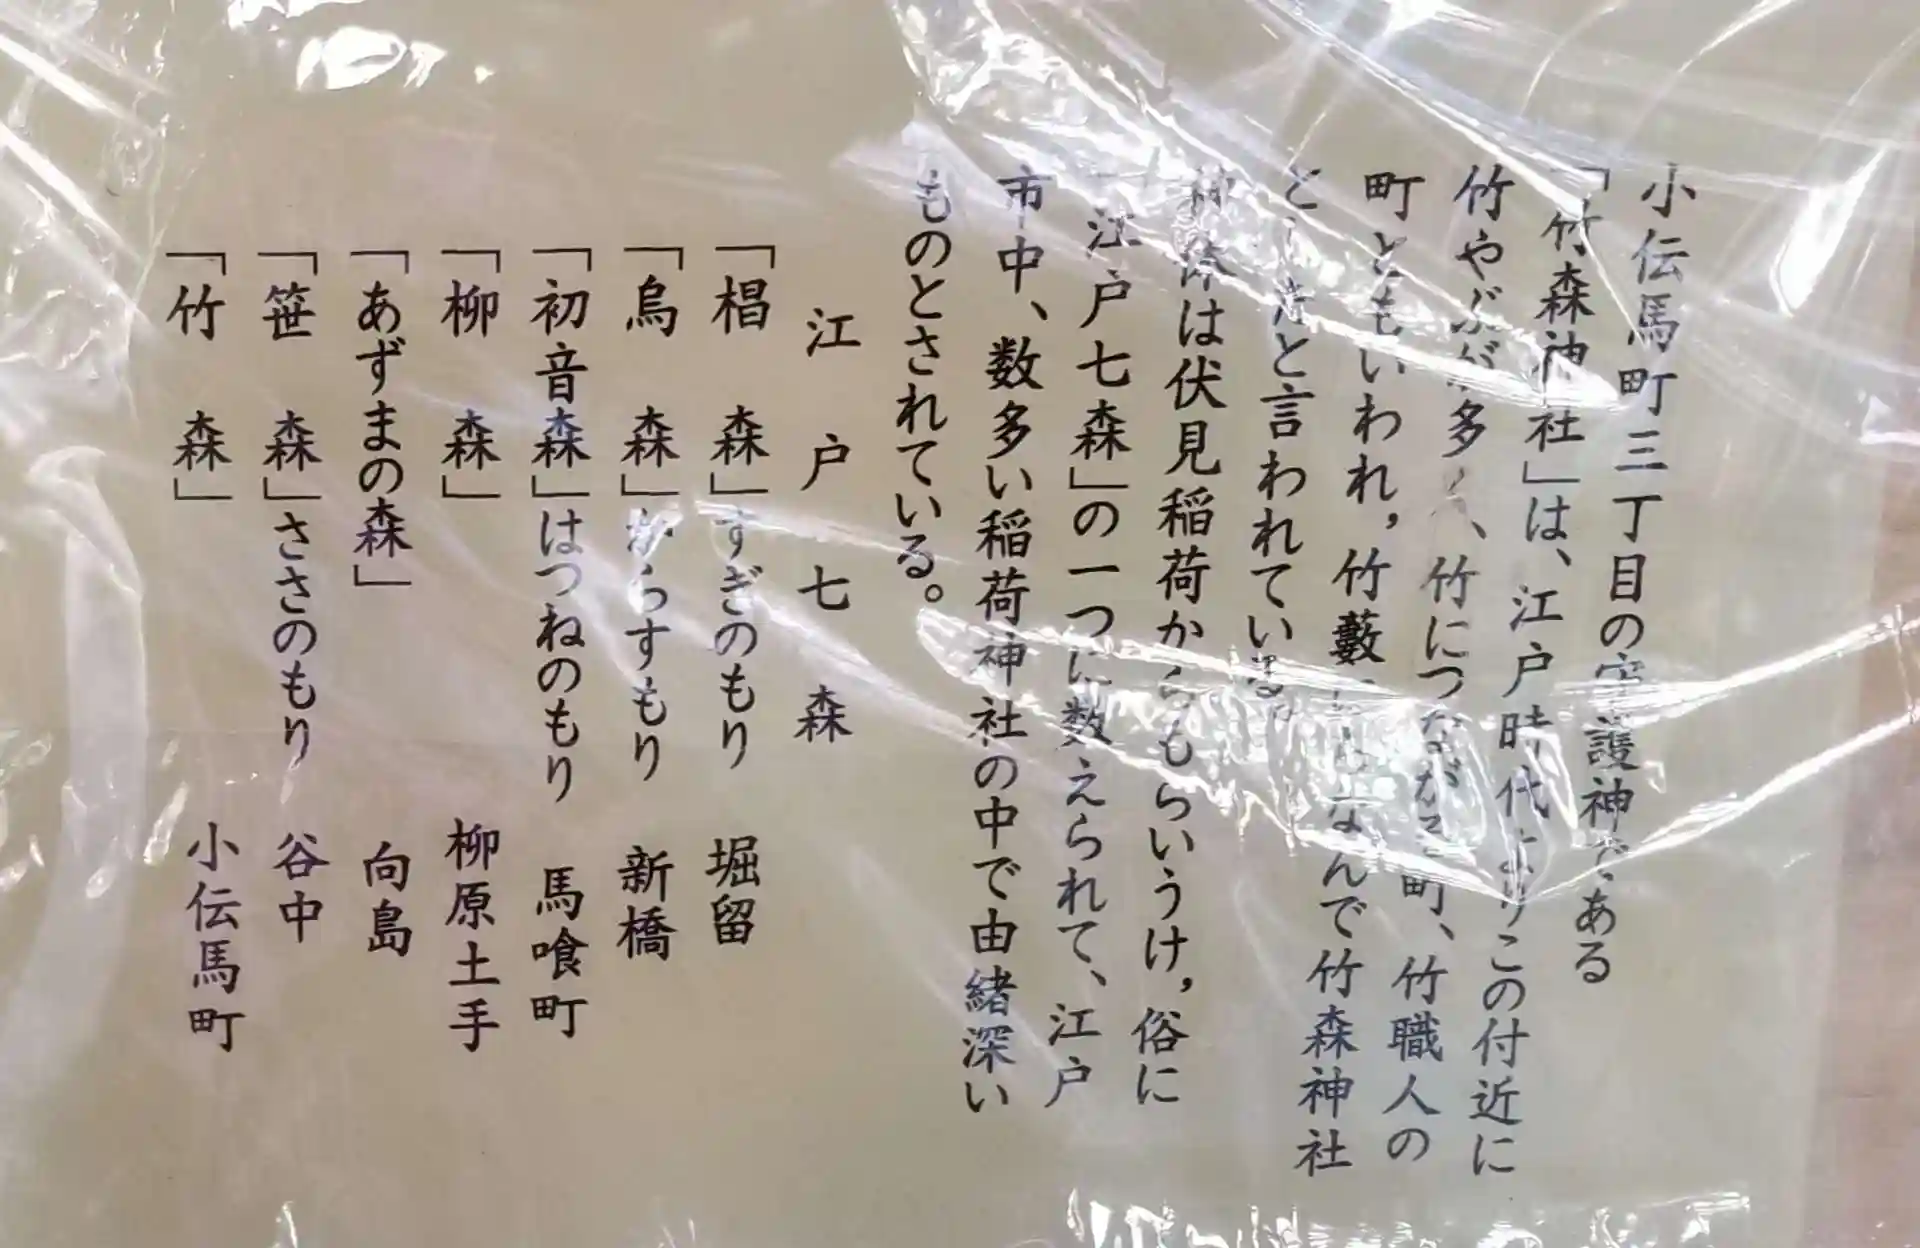 小伝馬町三丁目の守護神である
「竹森神社」は、江戸時代よりこの付近に
竹やぶが多く、竹につながる町、竹職人の
町ともいわれ，竹藪にちなんで竹森神社
としたと言われている。
御神体は伏見稲荷からもらいうけ，俗に
「江戸七森」の一つに数えられて、江戸
市中、数多い稲荷神社の中で由緒深い
ものとされている。
江戸七森
「椙　森」すぎのもり　堀留
「烏　森」からすもり　新橋
「初音森」はつねのもり　馬喰町
「柳　森」　柳原土手
「あずまの森」　向島
「笹　森」ささのもり　谷中
「竹　森」　小伝馬町